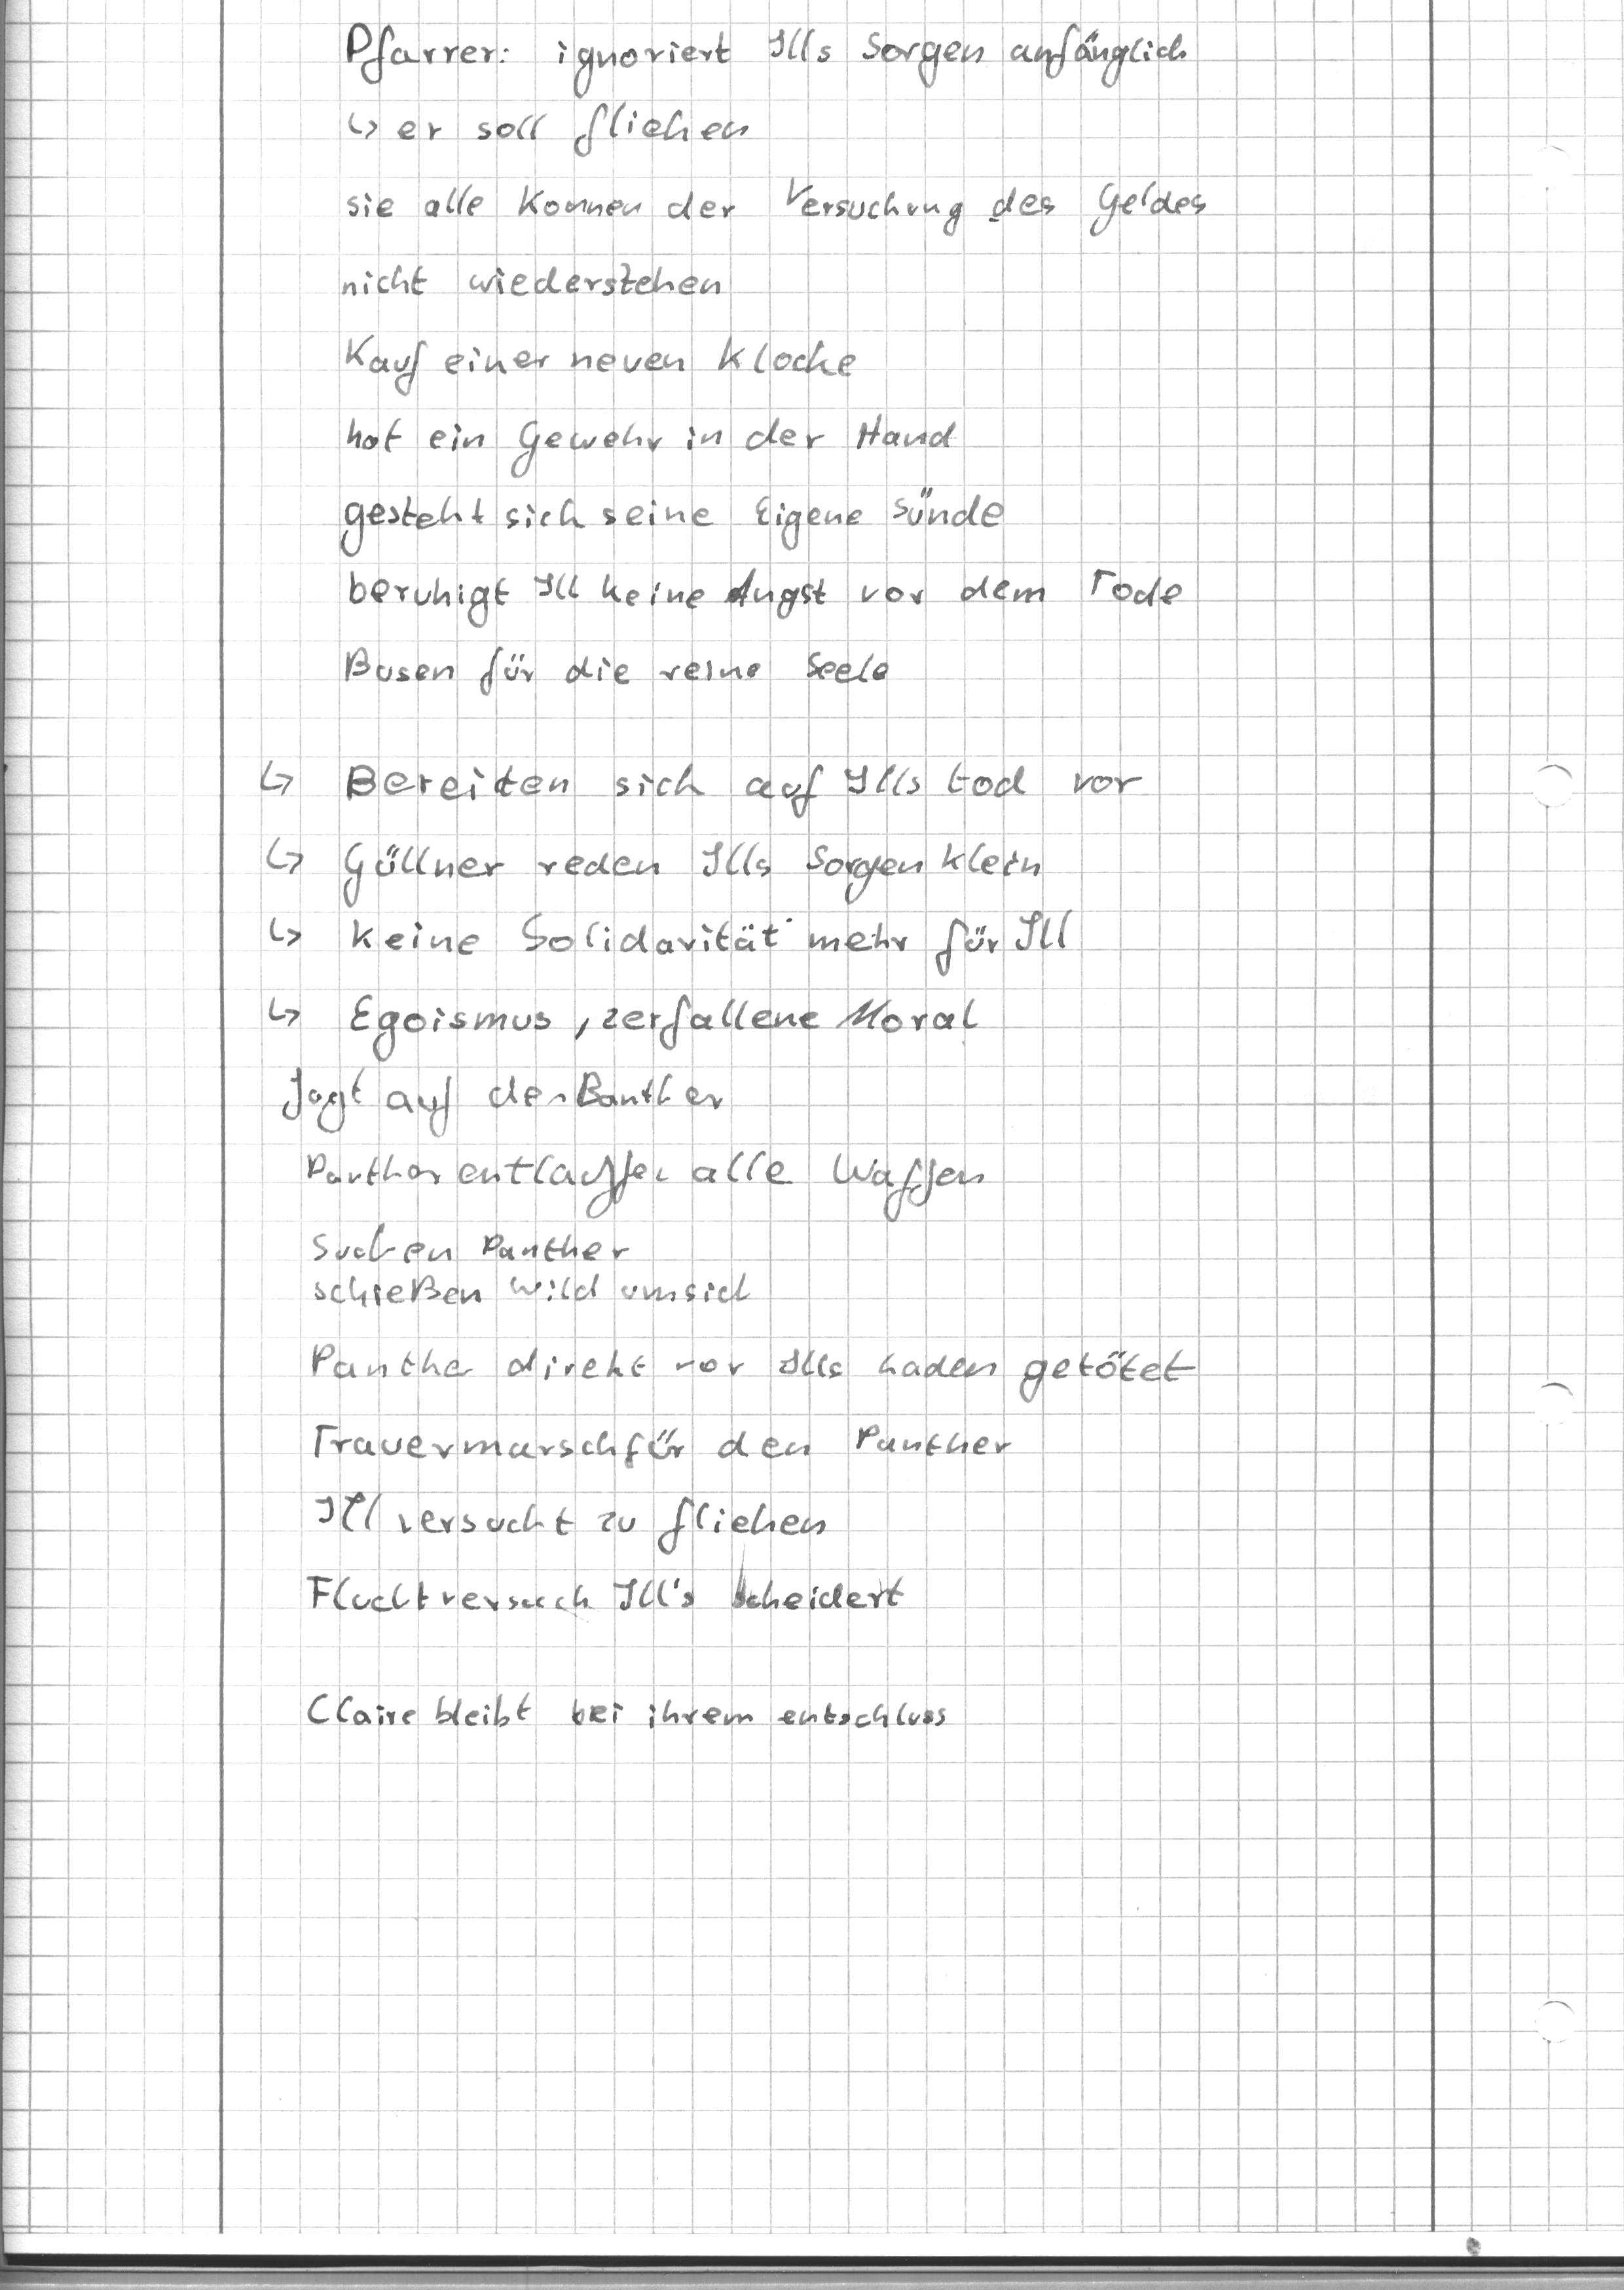 Pfarrer: ignoriert Ills Sorgen anfänglich
↳ er soll fliehen
sie alle konnen der Versuchung des Geldes
nicht wiederstehen
Kauf einer neuen Klocke
hat ein Gewehr in der Hand
gesteht sich seine Eigene Sünde
beruhigt Ill keine Angst vor dem Tode
Busen für die reine Seele
↳ Bereiten sich auf Ills tod vor
↳ Güllner reden Ills Sorgen klein
↳ keine Solidarität mehr für Ill
↳ Egoismus, zerfallene Moral
Jagt auf den Banther
Panther alle Waffen
Suchen Panther
schießen wild umsich
Panther direkt vor Ills Laden getötet
Trauermarsch für den Panther
Ill versucht zu fliehen
Fluchtversuch Ill's scheidert
Claire bleibt bei ihrem entschluss